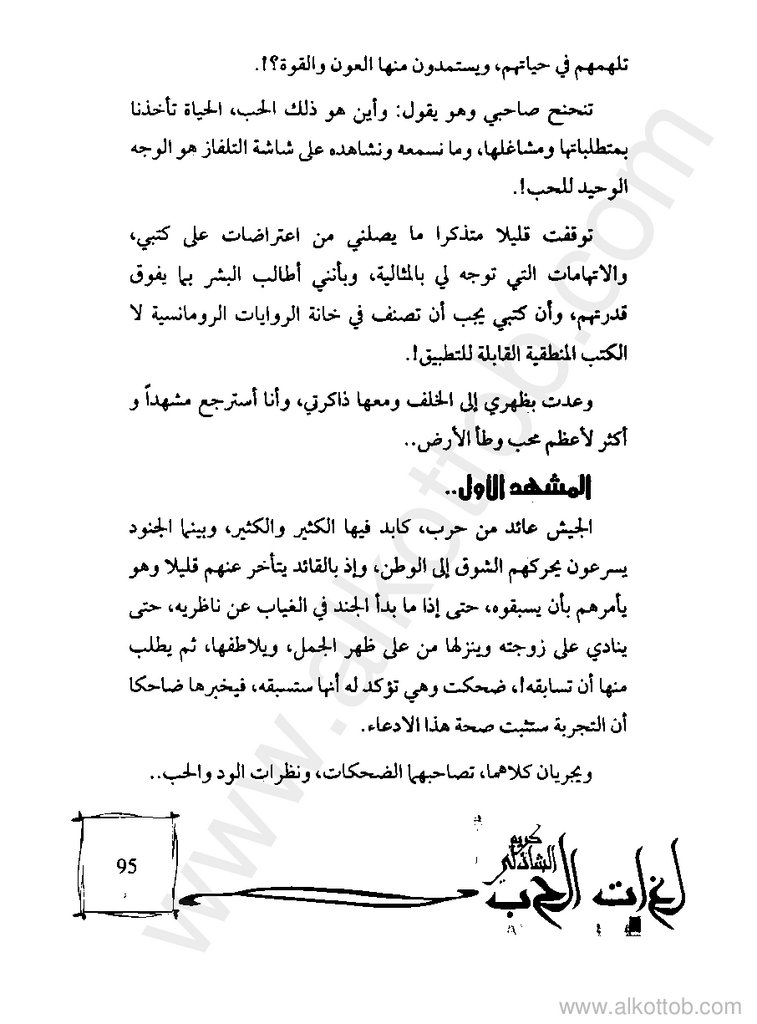 تلهمهم في حياتهم، ويستمدون منها العون والقوة؟!.
تنحنح صاحبي وهو يقول: وأين هو ذلك الحب، الحياة تأخذنا
بمتطلباتها ومشاغلها، وما نسمعه ونشاهده على شاشة التلفاز هو الوجه
الوحيد للحب!.
توقفت قليلا متذكرا ما يصلني من اعتراضات على كتبي،
والاتهامات التي توجه لي بالمثالية، وبأنني أطالب البشر بما يفوق
قدرتهم، وأن كتبي يجب أن تصنف في خانة الروايات الرومانسية لا
الكتب المنطقية القابلة للتطبيق!.
وعدت بظهري إلى الخلف ومعها ذاكرتي، وأنا أسترجع مشهداً و
أكثر لأعظم محب وطأ الأرض..
المشهد الأول..
الجيش عائد من حرب، كابد فيها الكثير والكثير، وبينما الجنود
يسرعون يحركهم الشوق إلى الوطن، وإذ بالقائد يتأخر عنهم قليلا وهو
يأمرهم بأن يسبقوه، حتى إذا ما بدأ الجند في الغياب عن ناظريه، حتى
ينادي على زوجته وينزلها من على ظهر الجمل، ويلاطفها، ثم يطلب
منها أن تسابقه!، ضحكت وهي تؤكد له أنها ستسبقه، فيخبرها ضاحكا
أن التجربة ستثبت صحة هذا الادعاء.
ويجريان كلاهما، تصاحبهما الضحكات، ونظرات الود والحب..
كريم
الشاذلي
لغات الحب
95
www.alkottob.com
www.alkottob.com